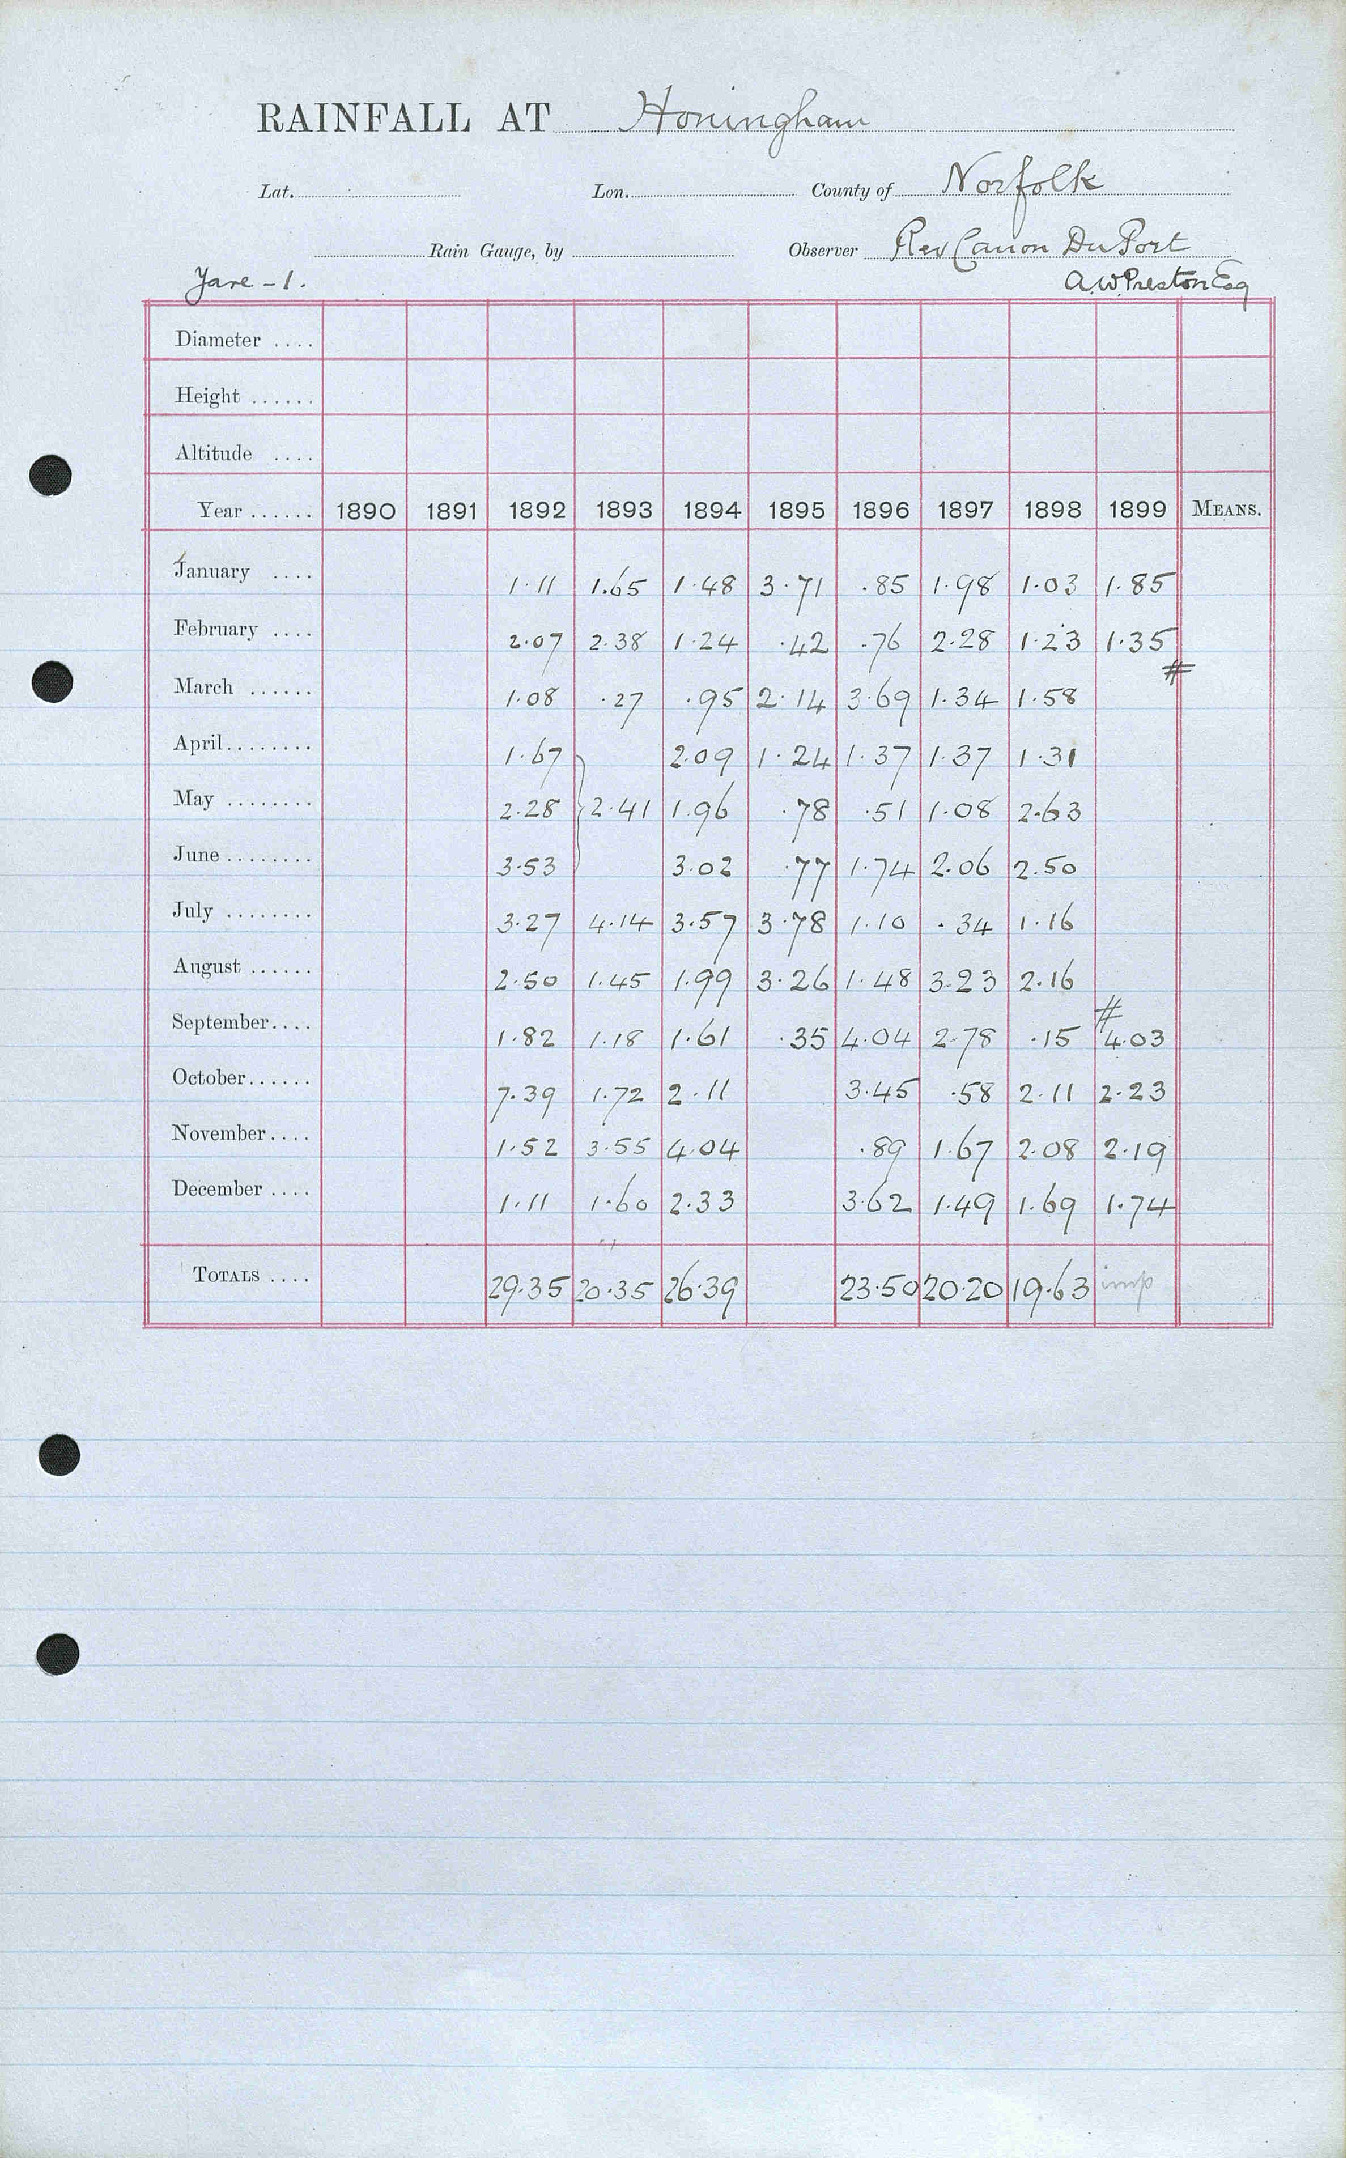 RAINFALL AT Honingham
Lat. Lon. County of Norfolk
Rain Gauge, by Observer Rev Canon Du Port
Yare - 1. A.W. Preston Esq
Diameter ....
Height ......
Altitude ....
Year ...... 1890 1891 1892 1893 1894 1895 1896 1897 1898 1899 MEANS.
January .... 1.11 1.65 1.48 3.71 .85 1.98 1.03 1.85
February .... 2.07 2.38 1.24 .42 .76 2.28 1.23 1.35
#
March ...... 1.08 .27 .95 2.14 3.69 1.34 1.58
April........ 1.67 2.09 1.24 1.37 1.37 1.31
May ........ 2.28 } 2.41 1.96 .78 .51 1.08 2.63
June........ 3.53 3.02 .77 1.74 2.06 2.50
July ........ 3.27 4.14 3.57 3.78 1.10 .34 1.16
August ...... 2.50 1.45 1.99 3.26 1.48 3.23 2.16
September.... 1.82 1.18 1.61 .35 4.04 2.78 .15 # 4.03
October...... 7.39 1.72 2.11 3.45 .58 2.11 2.23
November.... 1.52 3.55 4.04 .89 1.67 2.08 2.19
December .... 1.11 1.60 2.33 3.62 1.49 1.69 1.74
TOTALS .... 29.35 20.35 26.39 23.50 20.20 19.63 imp